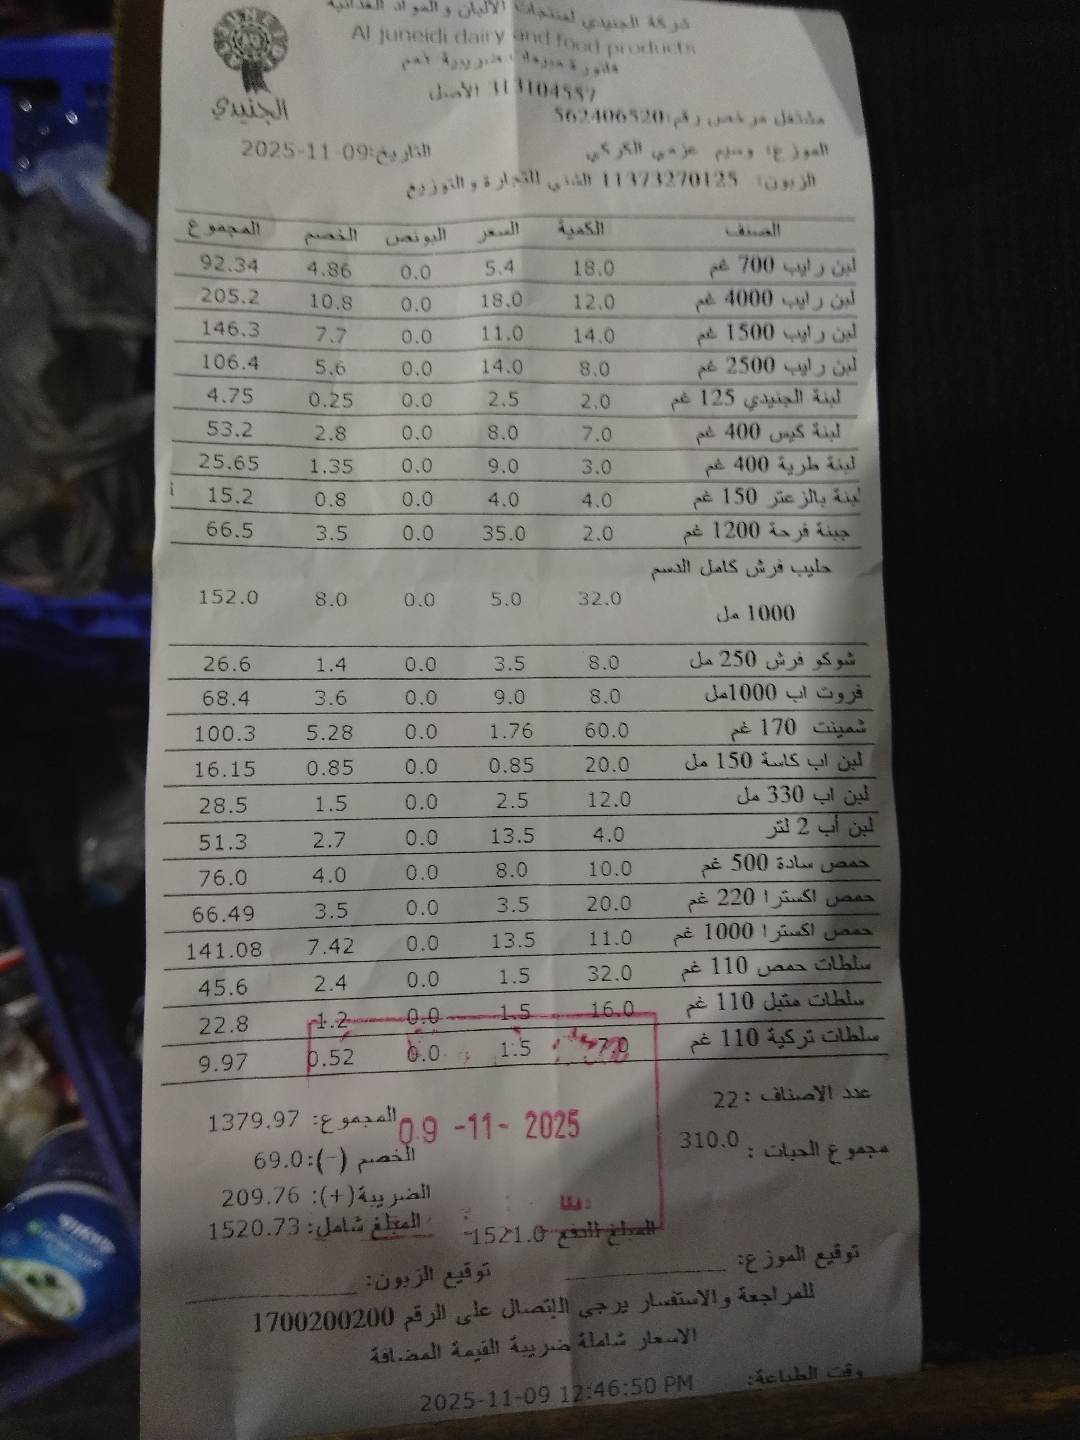 شركة الجنيدي لمنتجات الألبان و المواد الغذائية
Al juneidi dairy and food products
فاتورة مبيعات ضريبية رقم
313104557 الأصل
الجنيدي
مشتغل مرخص رقم:562406520
الموزع: وسيم عزمي الكركي التاريخ:2025-11-09
الزبون: 11373270125 الشني للتجارة و التوزيع
الصنف الكمية السعر البونص الخصم المجموع
لبن رايب 700 غم 18.0 5.4 0.0 4.86 92.34
لبن رايب 4000 غم 12.0 18.0 0.0 10.8 205.2
لبن رايب 1500 غم 14.0 11.0 0.0 7.7 146.3
لبن رايب 2500 غم 8.0 14.0 0.0 5.6 106.4
لبنة الجنيدي 125 غم 2.0 2.5 0.0 0.25 4.75
لبنة كيس 400 غم 7.0 8.0 0.0 2.8 53.2
لبنة طرية 400 غم 3.0 9.0 0.0 1.35 25.65
لبنة بالزعتر 150 غم 4.0 4.0 0.0 0.8 15.2
جبنة فرحة 1200 غم 2.0 35.0 0.0 3.5 66.5
حليب فرش كامل الدسم
1000 مل 32.0 5.0 0.0 8.0 152.0
شوكو فرش 250 مل 8.0 3.5 0.0 1.4 26.6
فروت اب 1000مل 8.0 9.0 0.0 3.6 68.4
شمينت 170 غم 60.0 1.76 0.0 5.28 100.3
لبن اب كاسة 150 مل 20.0 0.85 0.0 0.85 16.15
لبن اب 330 مل 12.0 2.5 0.0 1.5 28.5
لبن أب 2 لتر 4.0 13.5 0.0 2.7 51.3
حمص سادة 500 غم 10.0 8.0 0.0 4.0 76.0
حمص اكسترا 220 غم 20.0 3.5 0.0 3.5 66.49
حمص اكسترا 1000 غم 11.0 13.5 0.0 7.42 141.08
سلطات حمص 110 غم 32.0 1.5 0.0 2.4 45.6
سلطات متبل 110 غم 16.0 1.5 0.0 1.2 22.8
سلطات تركية 110 غم 7.0 1.5 0.0 0.52 9.97
عدد الاصناف : 22 المجموع: 1379.97
09 -11- 2025
مجموع الحبات : 310.0 الخصم (-):69.0
الضريبة(+): 209.76
المبلغ للدفع 1521.0 المبلغ شامل: 1520.73
توقيع الموزع: توقيع الزبون:
للمراجعة والاستفسار يرجى الإتصال على الرقم 1700200200
الاسعار شاملة ضريبة القيمة المضافة
وقت الطباعة: 2025-11-09 12:46:50 PM